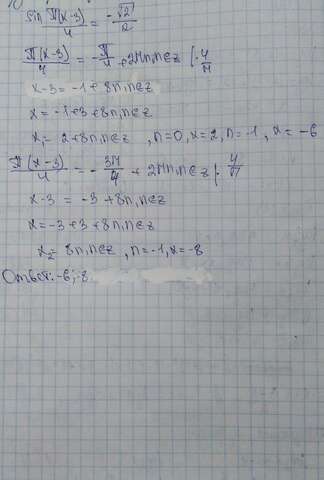 sin π(x-3)/4 = -√2/2
π(x-3)/4 = -π/4 + 2πn, n∈z | · 4/π
x-3 = -1 + 8n, n∈z
x = -1+3+8n, n∈z
x₁ = 2+8n, n∈z , n=0, x=2, n=-1, x=-6
π(x-3)/4 = -3π/4 + 2πn, n∈z | · 4/π
x-3 = -3+8n, n∈z
x = -3+3+8n, n∈z
x₂ = 8n, n∈z , n=-1, x=-8
Ответ: -6; -8